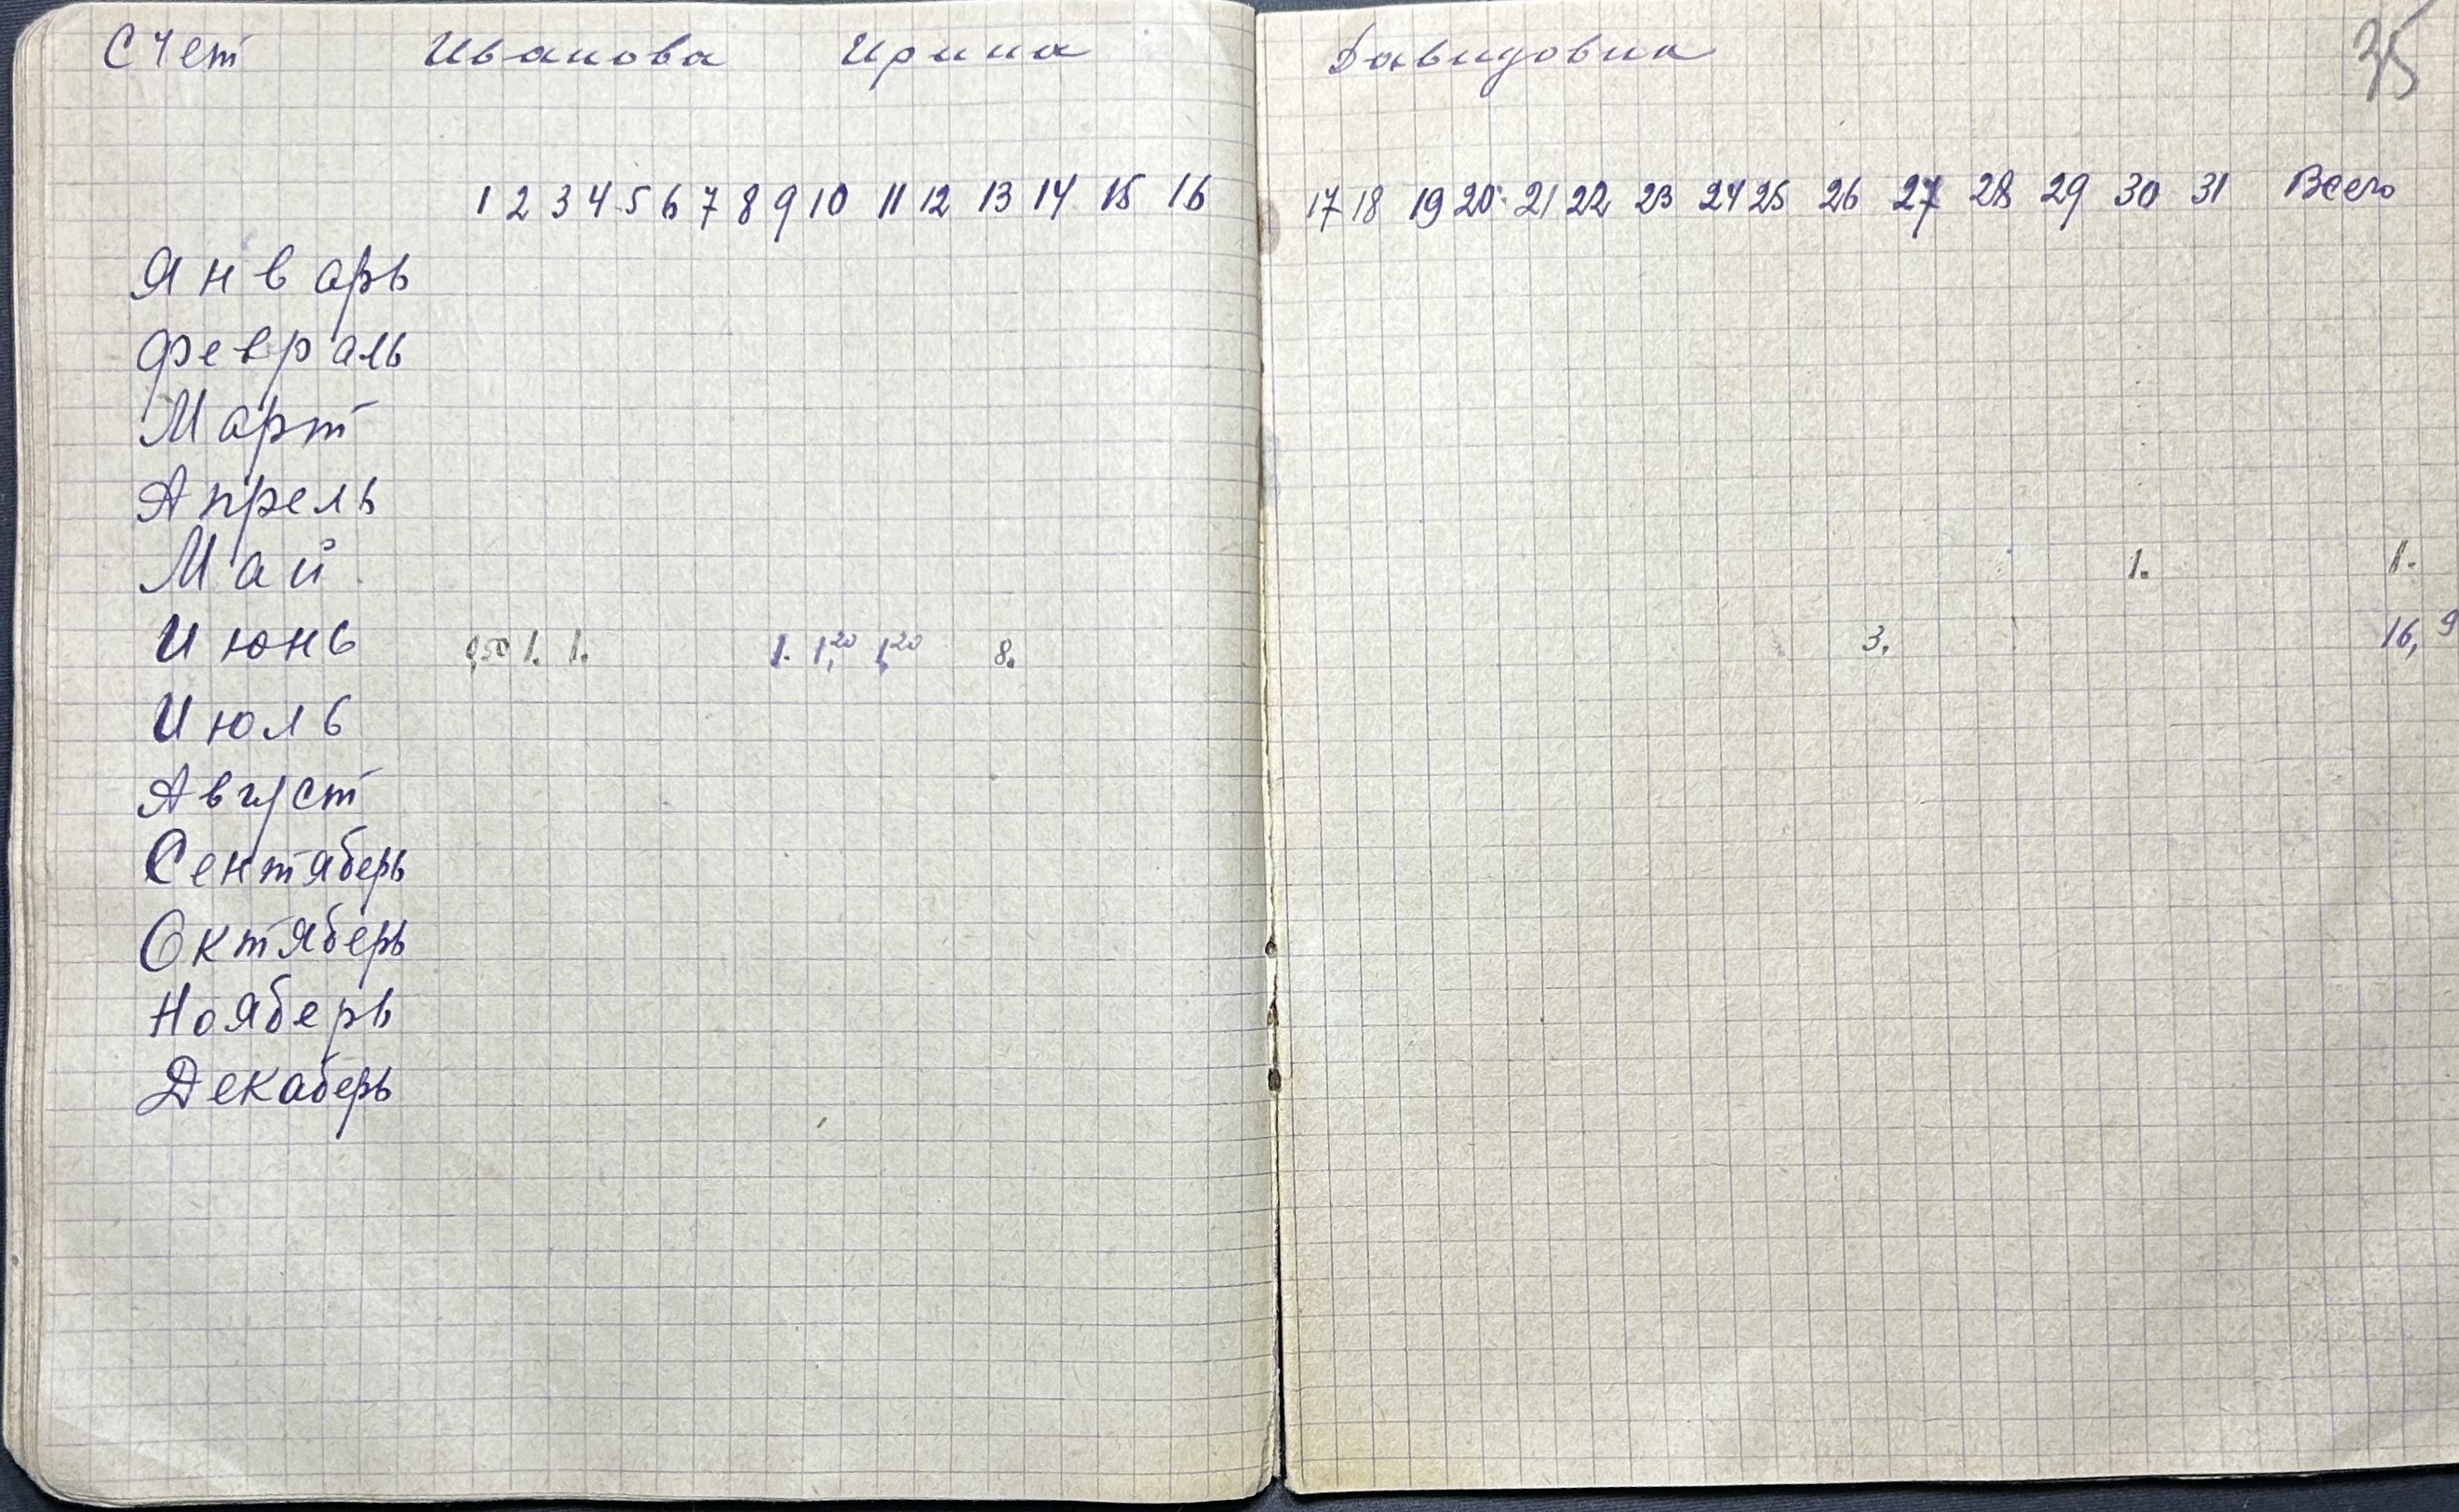 Счет Иванова Ирина Давидовна 35
1 2 3 4 5 6 7 8 9 10 11 12 13 14 15 16 17 18 19 20 21 22 23 24 25 26 27 28 29 30 31 Всего
Январь
Февраль
Март
Апрель
Май 1. 1.
Июнь 0,50 1. 1. 1. 1,20 1,20 8. 3. 16, 9
Июль
Август
Сентяберь
Октяберь
Нояберь
Декаберь